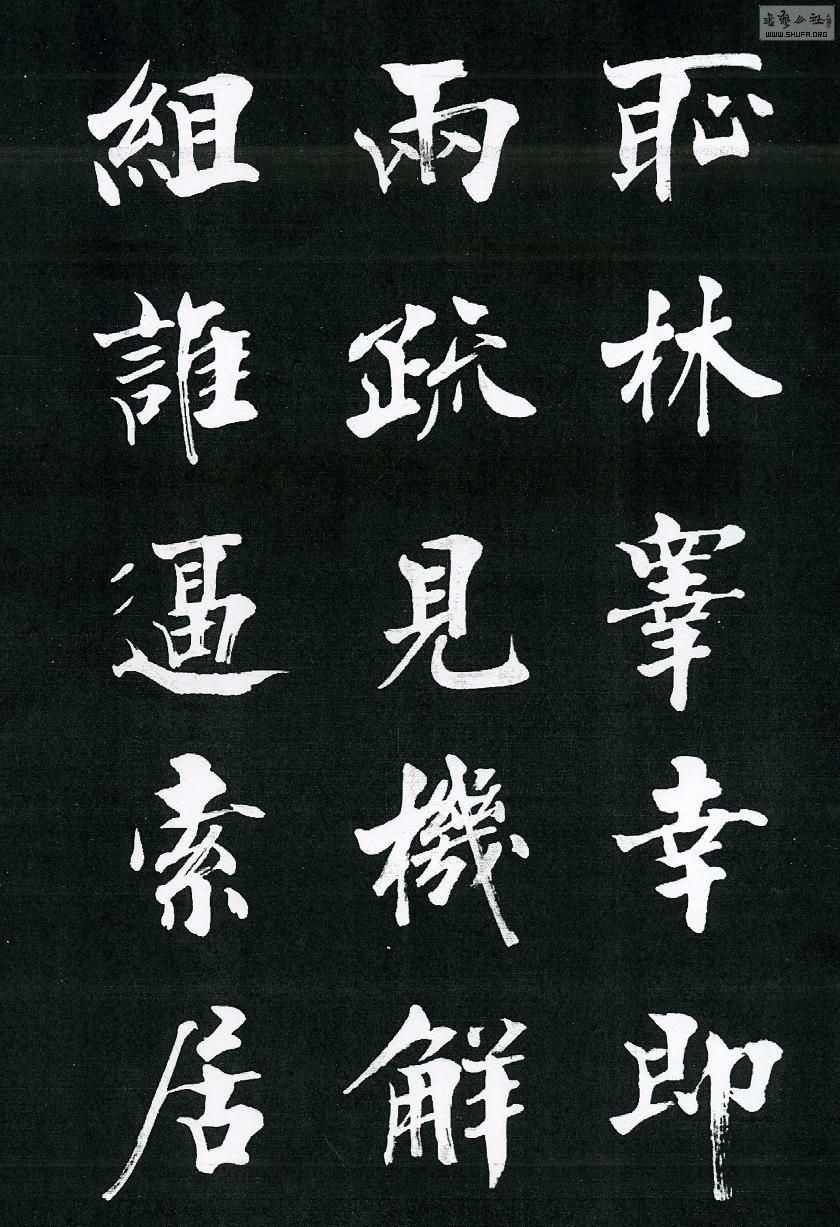 耻林睪幸即
兩疏見機解
組誰逼索居
書藝公社
WWW.SHUFA.ORG